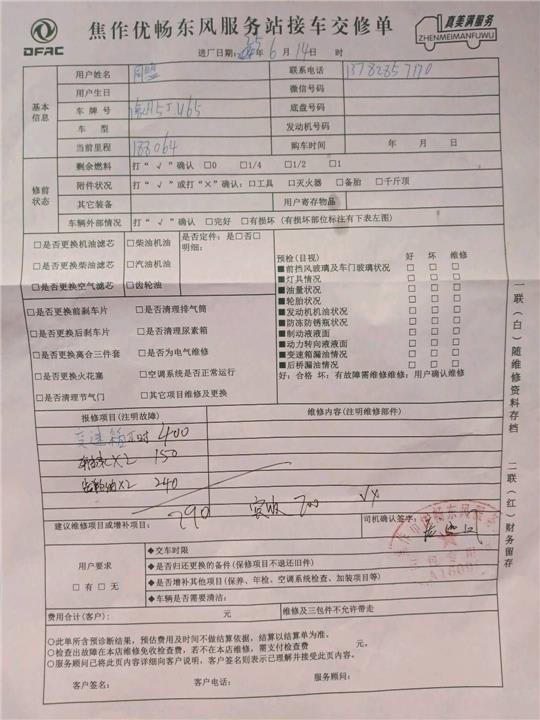 DFAC
焦作优畅东风服务站接车交修单
真美满服务
ZHENMEIMANFUWU
进厂日期: 年 6 月 14 日 时
基本信息
用户姓名 联系电话
用户生日 微信号码
车牌号 底盘号码
车型 发动机号码
当前里程 188064 购车时间 年 月 日
修前状态
剩余燃料 打“√”确认 □0 □1/4 □1/2 □1
附件状况 打“√”或打“×”确认:□工具 □灭火器 □备胎 □千斤顶
其它装备 用户寄存物品
车辆外部情况 打“√”确认 □完好 □有损坏 (有损坏部位标注有下表左图)
□是否更换机油滤芯 □柴油机油 是否定件: 是□否□
明细:
□是否更换柴油滤芯 □汽油机油
□是否更换空气滤芯 □齿轮油
□是否更换前刹车片 □是否清理排气筒
□是否更换后刹车片 □是否清理尿素箱
□是否更换离合三件套 □是否为电气维修
□是否更换火花塞 □空调系统是否正常运行
□是否清理节气门 □其它项目维修及更换
预检(目视) 好 坏 维修
■前挡风玻璃及车门玻璃状况 □ □ □
■灯具情况 □ □ □
■油量状况 □ □ □
■轮胎状况 □ □ □
■发动机机油状况 □ □ □
■防冻防锈瓶状况 □ □ □
■制动液液面 □ □ □
■动力转向液液面 □ □ □
■变速箱漏油情况 □ □ □
■后桥漏油情况 □ □ □
好:合格 坏:有故障需维修维修:用户确认维修
报修项目(注明故障) 维修内容(注明维修部件)
变速箱 400
X2 150
X2 240
790 实收 700
建议维修项目或增补项目: 司机确认签字:
用户要求
□有 □无
◆交车时限
◆是否归还更换的备件(保修项目不退还旧件)
◆是否增补其他项目(保养、年检、空调系统检查、加装项目等)
◆车辆是否需要清洁:
费用合计(客户): 元 维修及三包件不允许带走
○此单所含预诊断结果,预估费用及时间不做结算依据,结算以结算单为准。
○检查出故障在本店维修免收检查费,若不在本店维修,需支付检查费 元。
○服务顾问已将此页内容详细向客户说明,客户签名则表示已理解并接受此页内容。
客户签名: 客户电话: 服务顾问:
一联(白)随维修资料存档 二联(红)财务留存